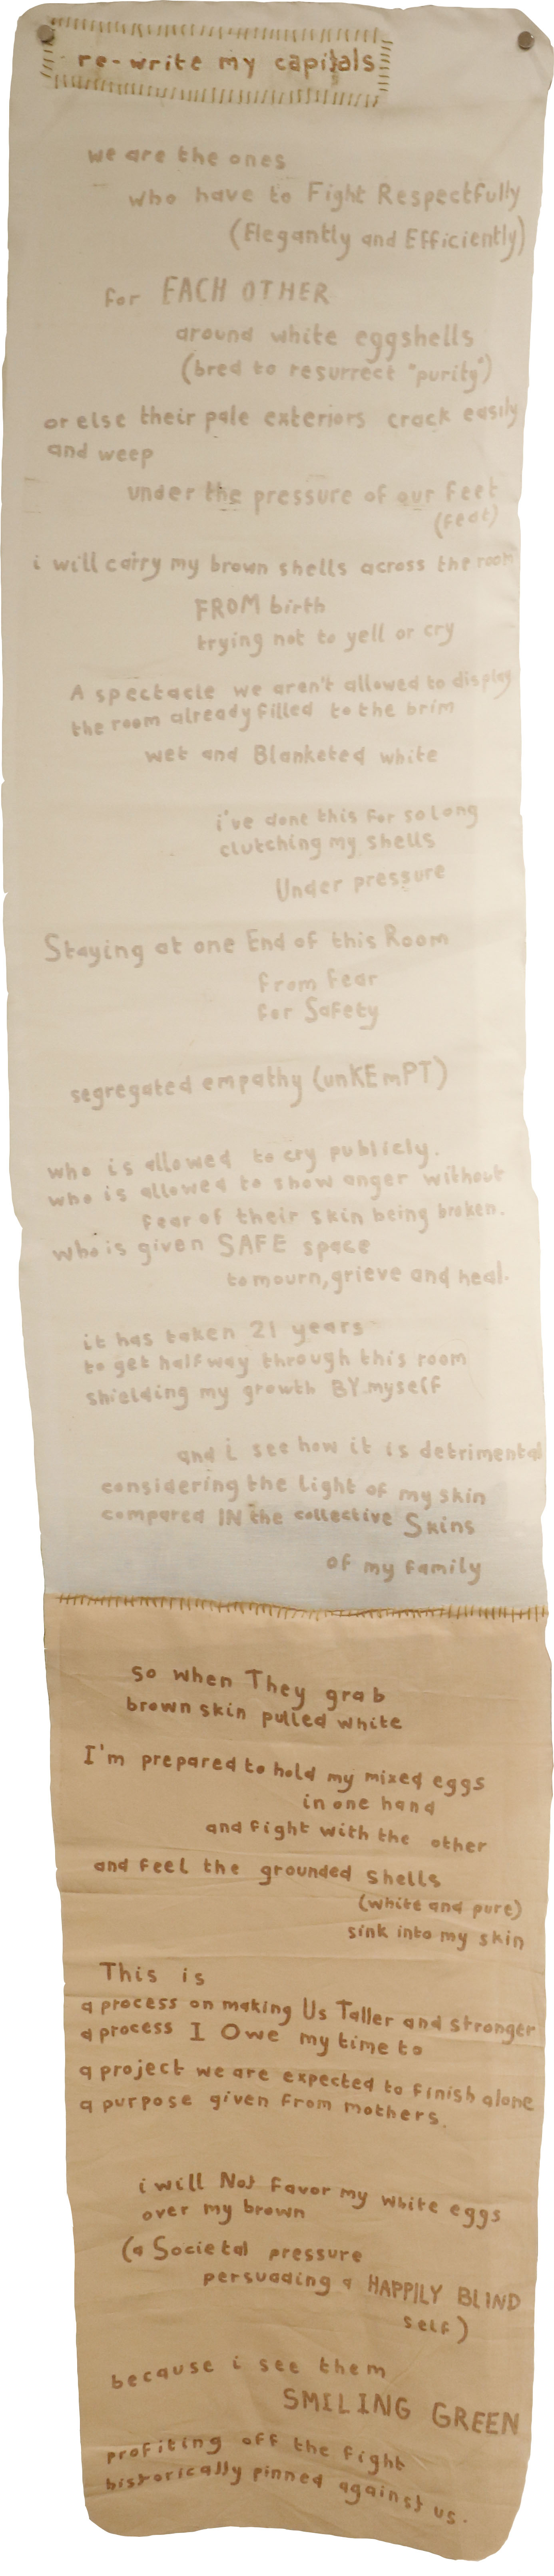 re-write my capitals
we are the ones
who have to Fight Respectfully
(Elegantly and Efficiently)
for EACH OTHER
around white eggshells
(bred to resurrect "purity")
or else their pale exteriors crack easily
and weep
under the pressure of our feet
(feat)
i will carry my brown shells across the room
FROM birth
trying not to yell or cry
A spectacle we aren't allowed to display
the room already filled to the brim
wet and Blanketed white
i've done this for so long
clutching my shells
Under pressure
Staying at one End of this Room
from fear
for Safety
segregated empathy (unKEmPT)
who is allowed to cry publicly.
who is allowed to show anger without
fear of their skin being broken.
who is given SAFE space
to mourn, grieve and heal.
it has taken 21 years
to get halfway through this room
shielding my growth BY myself
and i see how it is detrimental
considering the light of my skin
compared IN the collective Skins
of my family
so when They grab
brown skin pulled white
I'm prepared to hold my mixed eggs
in one hand
and fight with the other
and feel the grounded shells
(white and pure)
sink into my skin
This is
a process on making Us Taller and stronger
a process I Owe my time to
a project we are expected to finish alone
a purpose given from mothers.
i will Not favor my white eggs
over my brown
(a Societal pressure
persuading a HAPPILY BLIND
self)
because i see them
SMILING GREEN
profiting off the fight
historically pinned against us.